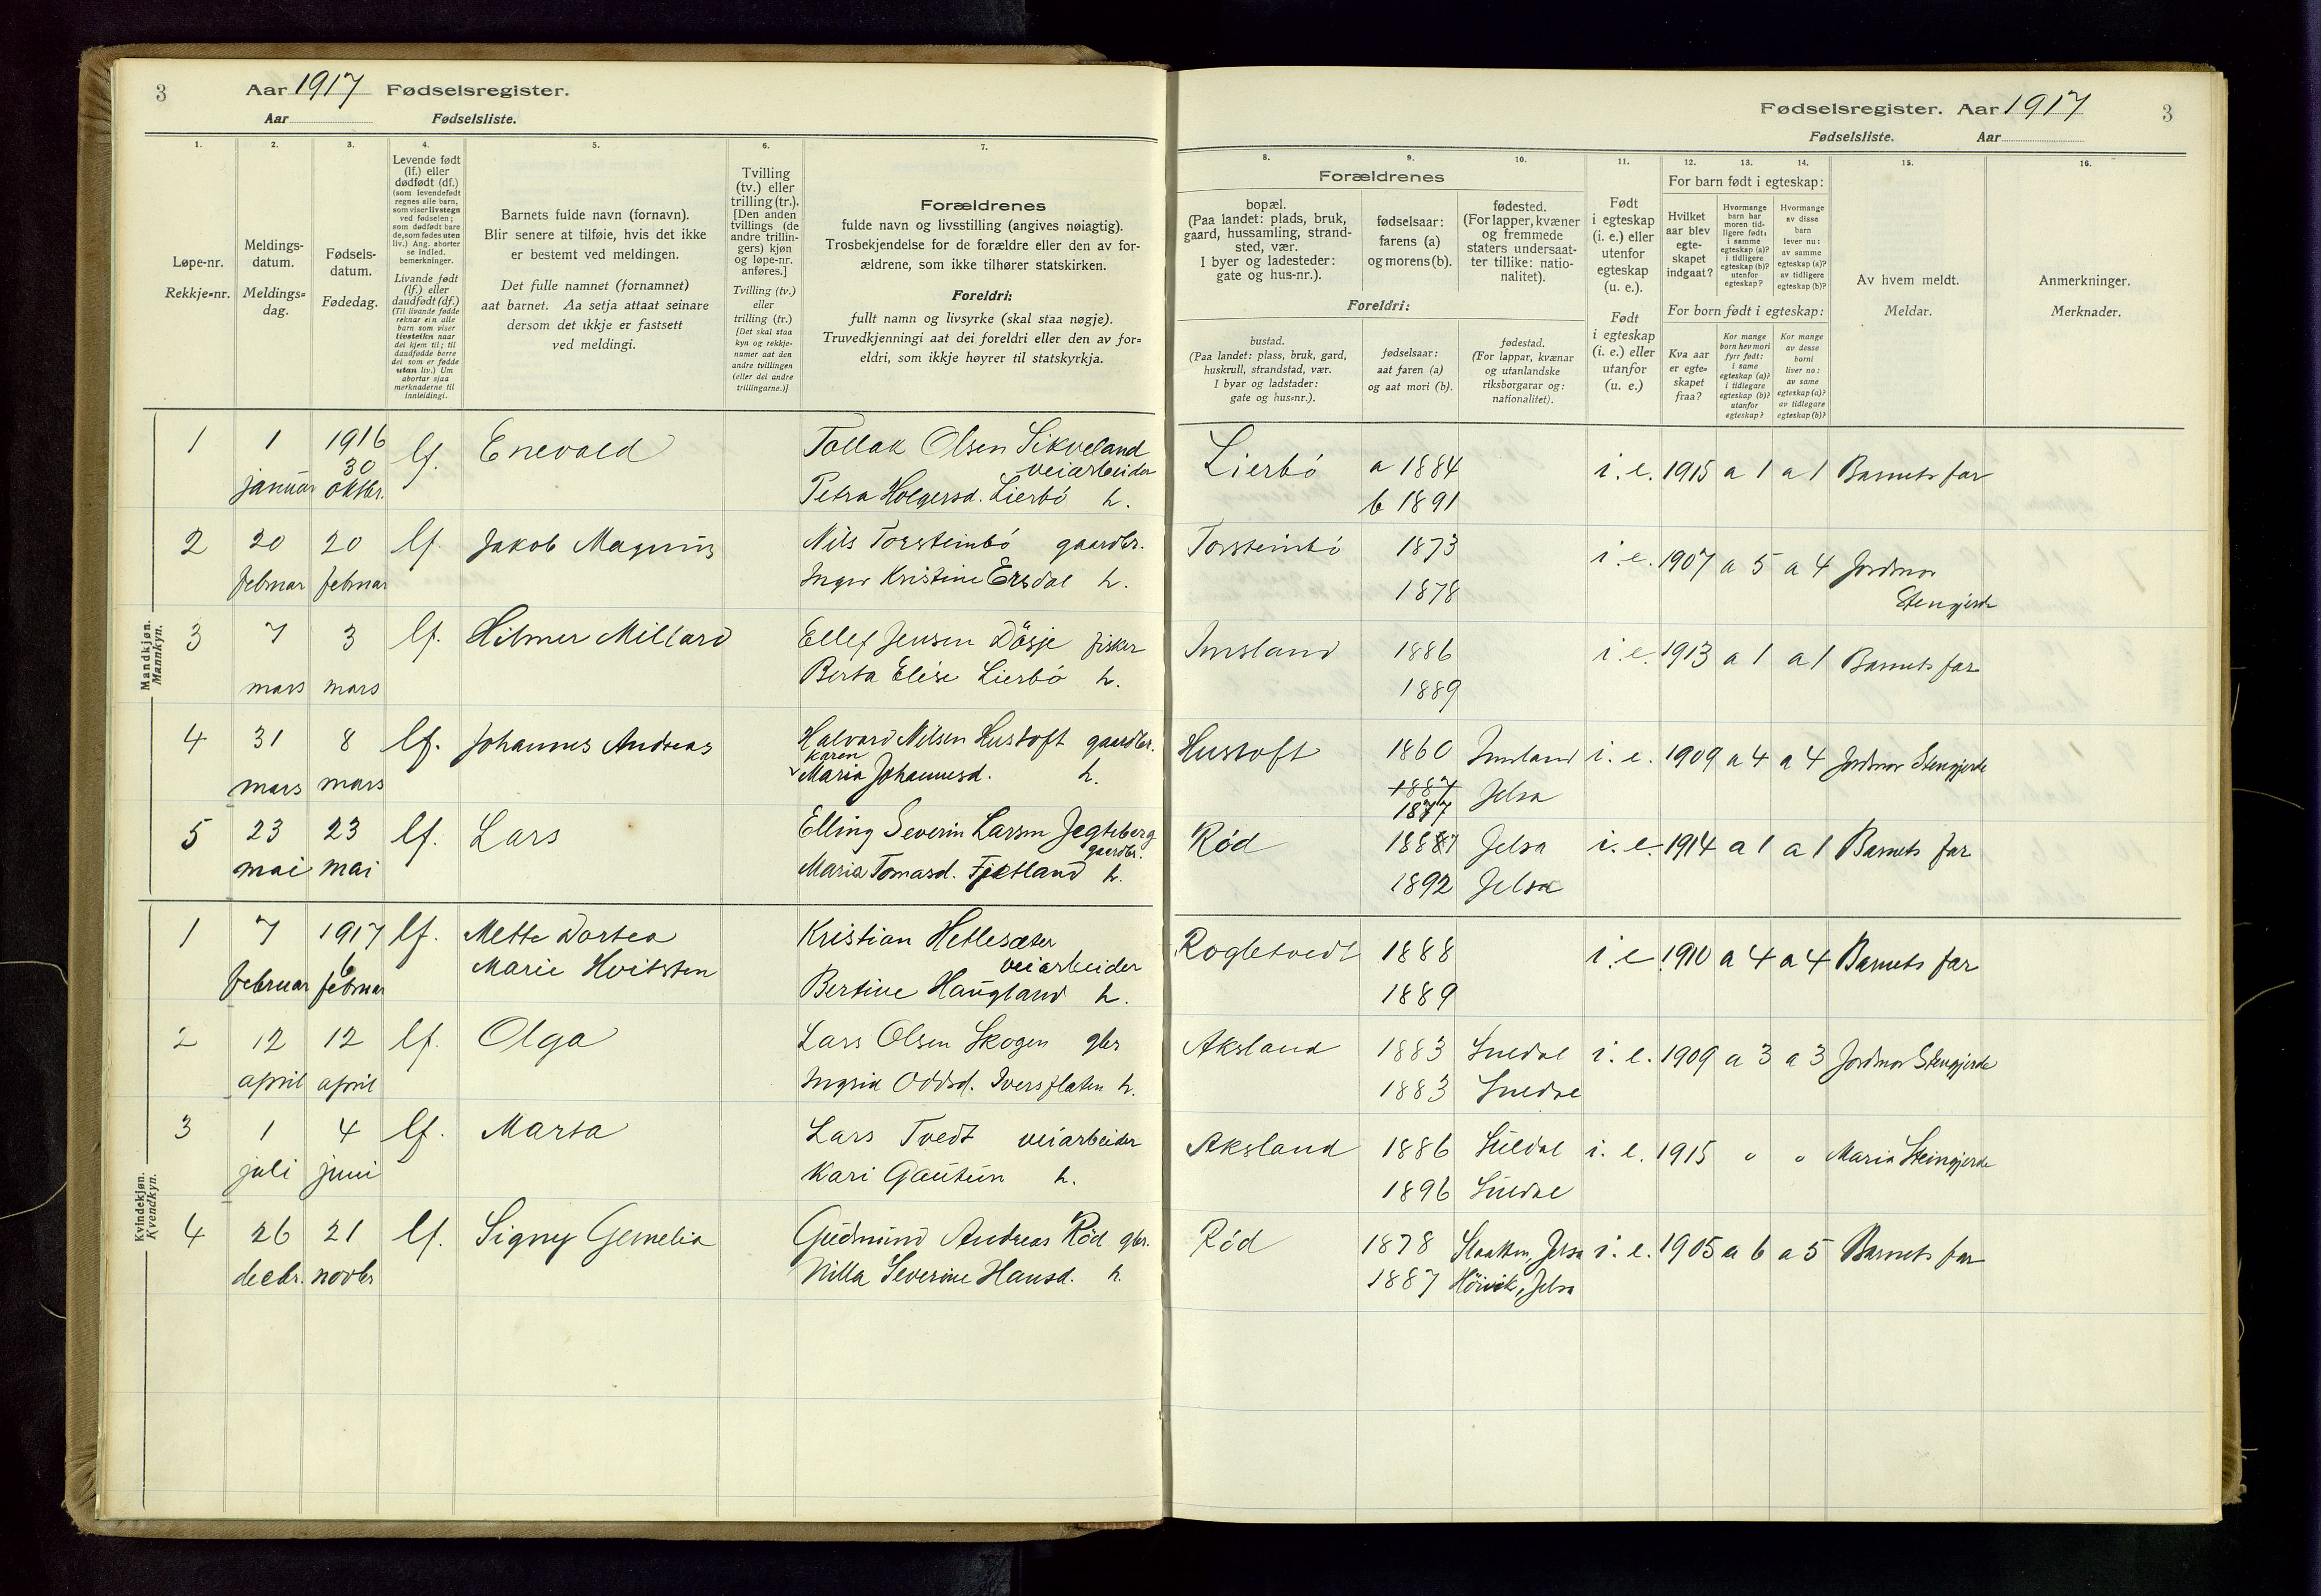 3
Aar 1917 Fødselsregister.
Aar Fødselsliste.
1.
Løpe-nr.
Rekkje-nr.
2.
Meldings-
datum.
Meldings-
dag.
3.
Fødsels-
datum.
Fødedag.
4.
Levende født
(lf.) eller
dødfødt (df.)
(som levendefødt
regnes alle barn,
som viser livstegn
ved fødselen;
som dødfødt bare
de, som fødes uten
liv.) Ang. aborter
se indled.
bemerkninger.
Livande født
(lf.) eller
daudfødt (df.)
(Til livande fødde
reknar ein alle
barn som viser
livsteikn naar
dei kjem til; til
daudfødde berre
dei som er fødde
utan liv.) Um
abortar sjaa
merknaderne til
innleidingi.
5.
Barnets fulde navn (fornavn).
Blir senere at tilføie, hvis det ikke
er bestemt ved meldingen.
Det fulle namnet (fornamnet)
aat barnet. Aa setja attaat seinare
dersom det ikkje er fastsett
ved meldingi.
6.
Tvilling
(tv.) eller
trilling (tr.).
[Den anden
tvillings (de
andre trillin-
gers) kjøn
og løpe-nr.
anføres.]
Tvilling (tv.)
eller
trilling (tr.)
[Det skal staa
kyn og rekkje-
numer aat den
andre tvillingen
(eller dei andre
trillingarne.)]
7.
Forældrenes
fulde navn og livsstilling (angives nøiagtig).
Trosbekjendelse for de forældre eller den av for-
ældrene, som ikke tilhører statskirken.
Foreldri:
fullt namn og livsyrke (skal staa nøgje).
Truvedkjenningi aat dei foreldri eller den av for-
eldri, som ikkje høyrer til statskyrkja.
Mandkjøn.
Mannkyn.
1 1 1916 lf. Enevald Tollak Olsen Sikveland
30 veiarbeider
januar oktbr. Petra Holgersd. Lierbö h.
2 20 20 lf. Jakob Magnus Nils Torsteinbö gaardbr.
februar februar Inger Kristine Ersdal h.
3 7 3 lf. Hilmer Millard Ellef Jensen Døsje fisker
mars mars Berta Elise Lierbö h.
4 31 8 lf. Johannes Andreas Halvard Nilsen Hustoft gaardbr.
Karen
mars mars Maria Johannesd. h.
5 23 23 lf. Lars Elling Severin Larsen Jegteberg
gaardbr.
mai mai Maria Tomasd. Fjetland h.
Kvindekjøn.
Kvendkyn.
1 7 1917 lf. Mette Dortea Kristian Hetlesæter
6 Marie Hvitsten veiarbeider
februar februar Bertine Haugland h.
2 12 12 lf. Olga Lars Olsen Skogen gbr
april april Ingrid Oddsd. Iversflaten h.
3 1 4 lf. Marta Lars Tvedt veiarbeider
juli juni Kari Gautun h.
4 26 21 lf. Signy Gemelia Gudmund Andreas Röd gbr.
decbr. novbr Nilla Severine Hansd. h.
Fødselsregister. Aar 1917
3
Fødselsliste. Aar
8.
9.
10.
Forældrenes
bopæl.
(Paa landet: plads, bruk,
gaard, hussamling, strand-
sted, vær.
I byer og ladesteder:
gate og hus-nr.).
fødselsaar:
farens (a)
og morens (b).
fødested.
(For lapper, kvæner
og fremmede
staters undersaat-
ter tillike: natio-
nalitet).
Foreldri:
bustad.
(Paa landet: plass, bruk, gard,
huskrull, strandstad, vær.
I byar og ladstader:
gate og hus-nr.).
fødselsaar:
aat faren (a)
og aat mori (b).
fødestad.
(For lappar, kvænar
og utanlandske
riksborgarar og:
nationalitet).
11.
Født
i egteskap
(i. e.) eller
utenfor
egteskap
(u. e.).
Født
i egteskap
(i. e.) eller
utanfor
(u. e.)
12.
13.
14.
For barn født i egteskap:
Hvilket
aar blev
egte-
skapet
indgaat?
Hvormange
barn har
moren tid-
ligere født:
i samme
egteskap (a)?
i tidligere
egteskap (b)?
utenfor
egteskap?
Hvormange
av disse
barn
lever nu:
av samme
egteskap (a)?
av tidligere
egteskap (b)?
For born født i egteskap:
Kva aar
er egte-
skapet
fraa?
Kor mange
born hev mori
fyrr født:
i same
egteskap (a)?
i tidlegare
egteskap (b)?
utanfor
egteskap?
Kor mange
av desse
borni
liver no:
av same
egteskap (a)?
av tidlegare
egteskap (b)?
15.
Av hvem meldt.
Meldar.
16.
Anmerkninger.
Merknader.
Lierbö a 1884 i. e. 1915 a 1 a 1 Barnets far
b 1891
Torsteinbö 1873 i. e. 1907 a 5 a 4 Jordmor
1878 Stengjerde
Imsland 1886 i. e. 1913 a 1 a 1 Barnets far
1889
Hustoft 1860 Imsland i. e. 1909 a 4 a 4 Jordmor Stengjerde
1887 Jelsa
1877
Röd 1887 Jelsa i. e. 1914 a 1 a 1 Barnets far
1892 Jelsa
Rogletvedt 1888 i. e. 1910 a 4 a 4 Barnets far
1889
Aksland 1883 Suldal i. e. 1909 a 3 a 3 Jordmor Stengjerde
1883 Suldal
Aksland 1886 Suldal i. e. 1915 " " Maria Steingjerde
1896 Suldal
Röd 1878 Jelsa i. e. 1905 a 6 a 5 Barnets far
1887 Höivik, Jelsa